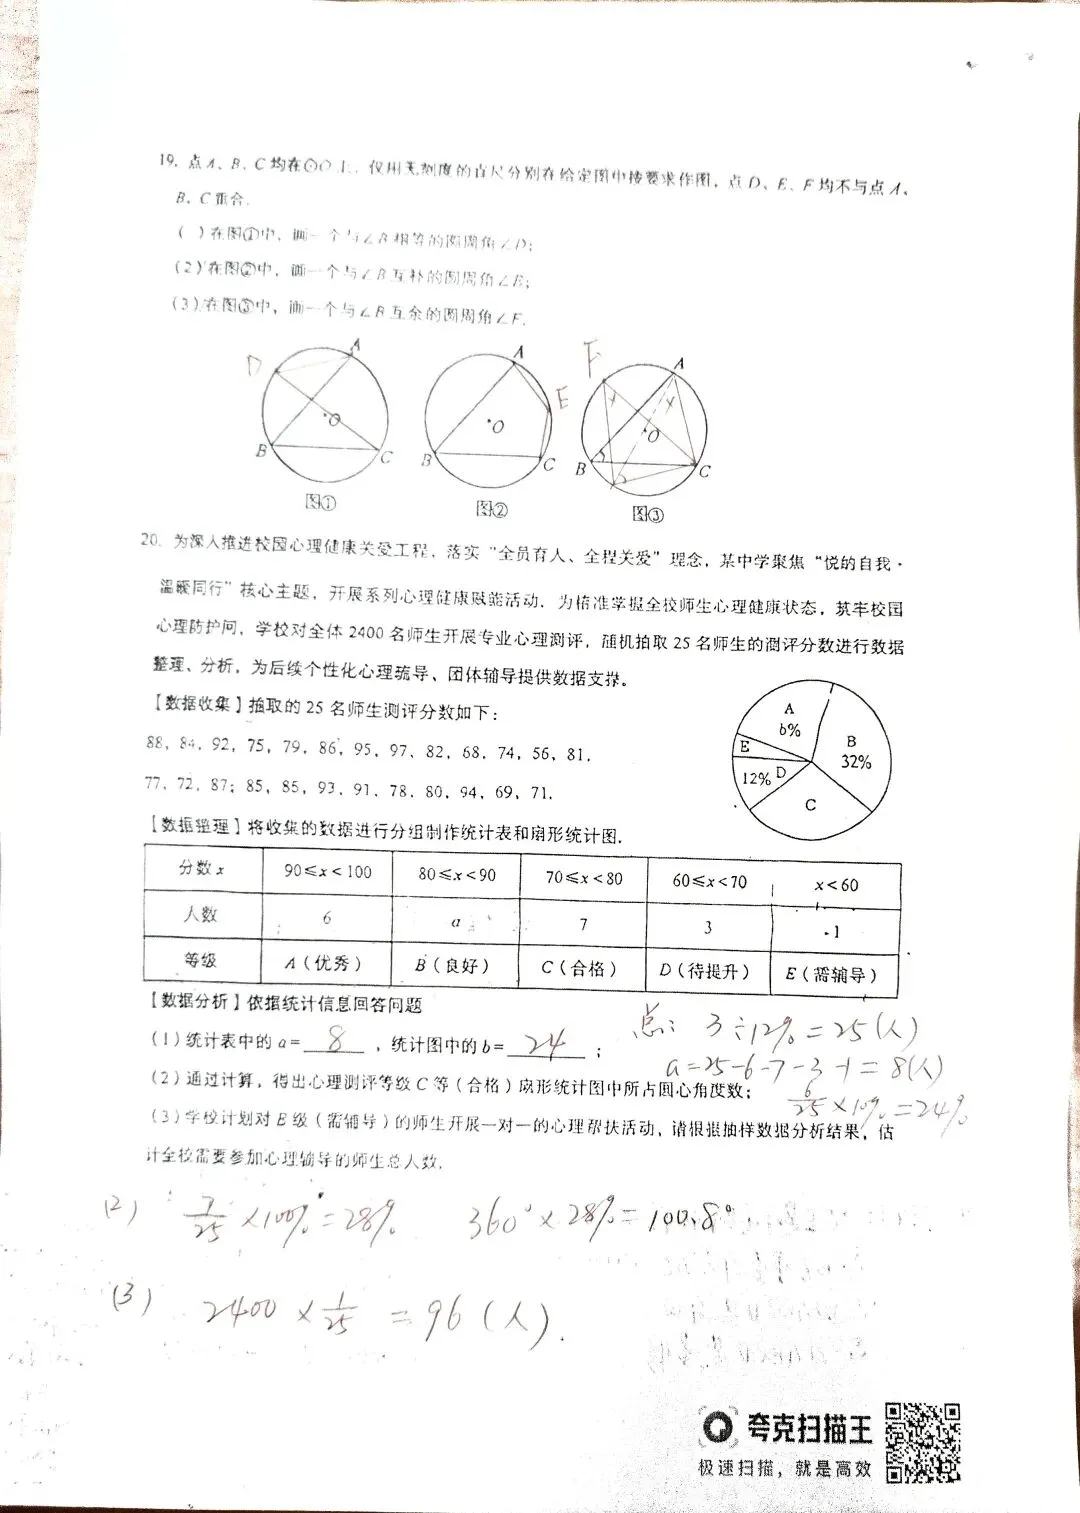 19. 点 A、B、C 均在⊙O 上, 仅用无刻度的直尺分别在给定图中按要求作图, 点 D、E、F 均不与点 A、
B、C 重合.
( ) 在图①中, 画一个与∠B 相等的圆周角∠D;
(2) 在图②中, 画一个与∠B 互补的圆周角∠E;
(3) 在图③中, 画一个与∠B 互余的圆周角∠F.
D A O B C
图①
A E O B C
图②
F A O B C
图③
20. 为深入推进校园心理健康关爱工程, 落实“全员育人、全程关爱”理念, 某中学聚焦“悦的自我·
温暖同行”核心主题, 开展系列心理健康赋能活动. 为精准掌握全校师生心理健康状态, 筑牢校园
心理防护网, 学校对全体 2400 名师生开展专业心理测评, 随机抽取 25 名师生的测评分数进行数据
整理、分析, 为后续个性化心理疏导、团体辅导提供数据支撑。
【数据收集】抽取的 25 名师生测评分数如下:
88, 84, 92, 75, 79, 86, 95, 97, 82, 68, 74, 56, 81,
77, 72, 87; 85, 85, 93, 91, 78, 80, 94, 69, 71.
A
b%
B
32%
E
12% D
C
【数据整理】将收集的数据进行分组制作统计表和扇形统计图.
分数 x 90≤x<100 80≤x<90 70≤x<80 60≤x<70 x<60
人数 6 a 7 3 1
等级 A (优秀) B (良好) C (合格) D (待提升) E (需辅导)
【数据分析】依据统计信息回答问题
(1) 统计表中的 a= 8 , 统计图中的 b= 24 ;
总: 3÷12%=25(人)
a=25-6-7-3-1=8(人)
(2) 通过计算, 得出心理测评等级 C 等 (合格) 扇形统计图中所占圆心角度数;
6/25 ×10%=24%
(3) 学校计划对 E 级 (需辅导) 的师生开展一对一的心理帮扶活动, 请根据抽样数据分析结果, 估
计全校需要参加心理辅导的师生总人数.
(2) 7/25 ×100%=28% 360°×28%=100.8°
(3) 2400×1/25 =96(人).
夸克扫描王
极速扫描, 就是高效